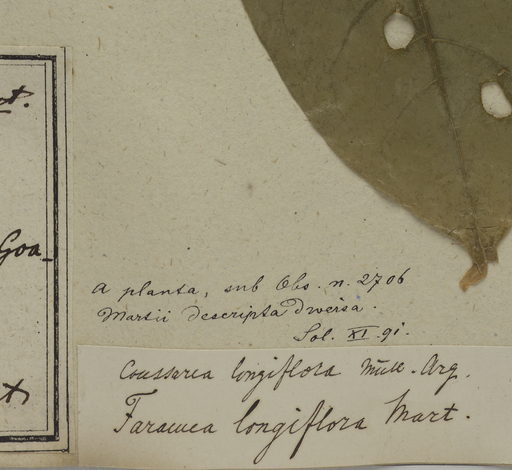 st.
Goa_
A planta, sub Obs. n. 2706
Martii descripta diversa.
Sol. XI. 91.
Coussarea longiflora Müll. Arg.
Faramea longiflora Mart.